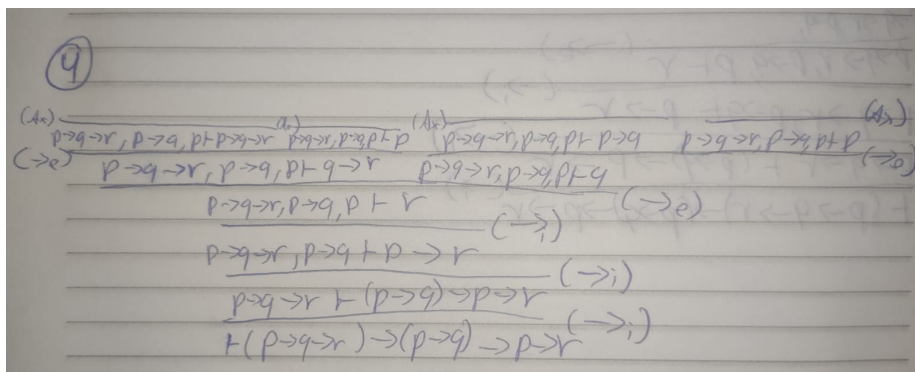 4
(Ax) (Ax) (Ax) (Ax)
p→q→r, p→q, p⊢p→q→r p→q→r, p→q, p⊢p p→q→r, p→q, p⊢p→q p→q→r, p→q, p⊢p
(→e) p→q→r, p→q, p⊢q→r p→q→r, p→q, p⊢q (→e)
p→q→r, p→q, p⊢r (→e)
p→q→r, p→q⊢p→r (→i)
p→q→r⊢(p→q)→p→r (→i)
⊢(p→q→r)→(p→q)→p→r (→i)